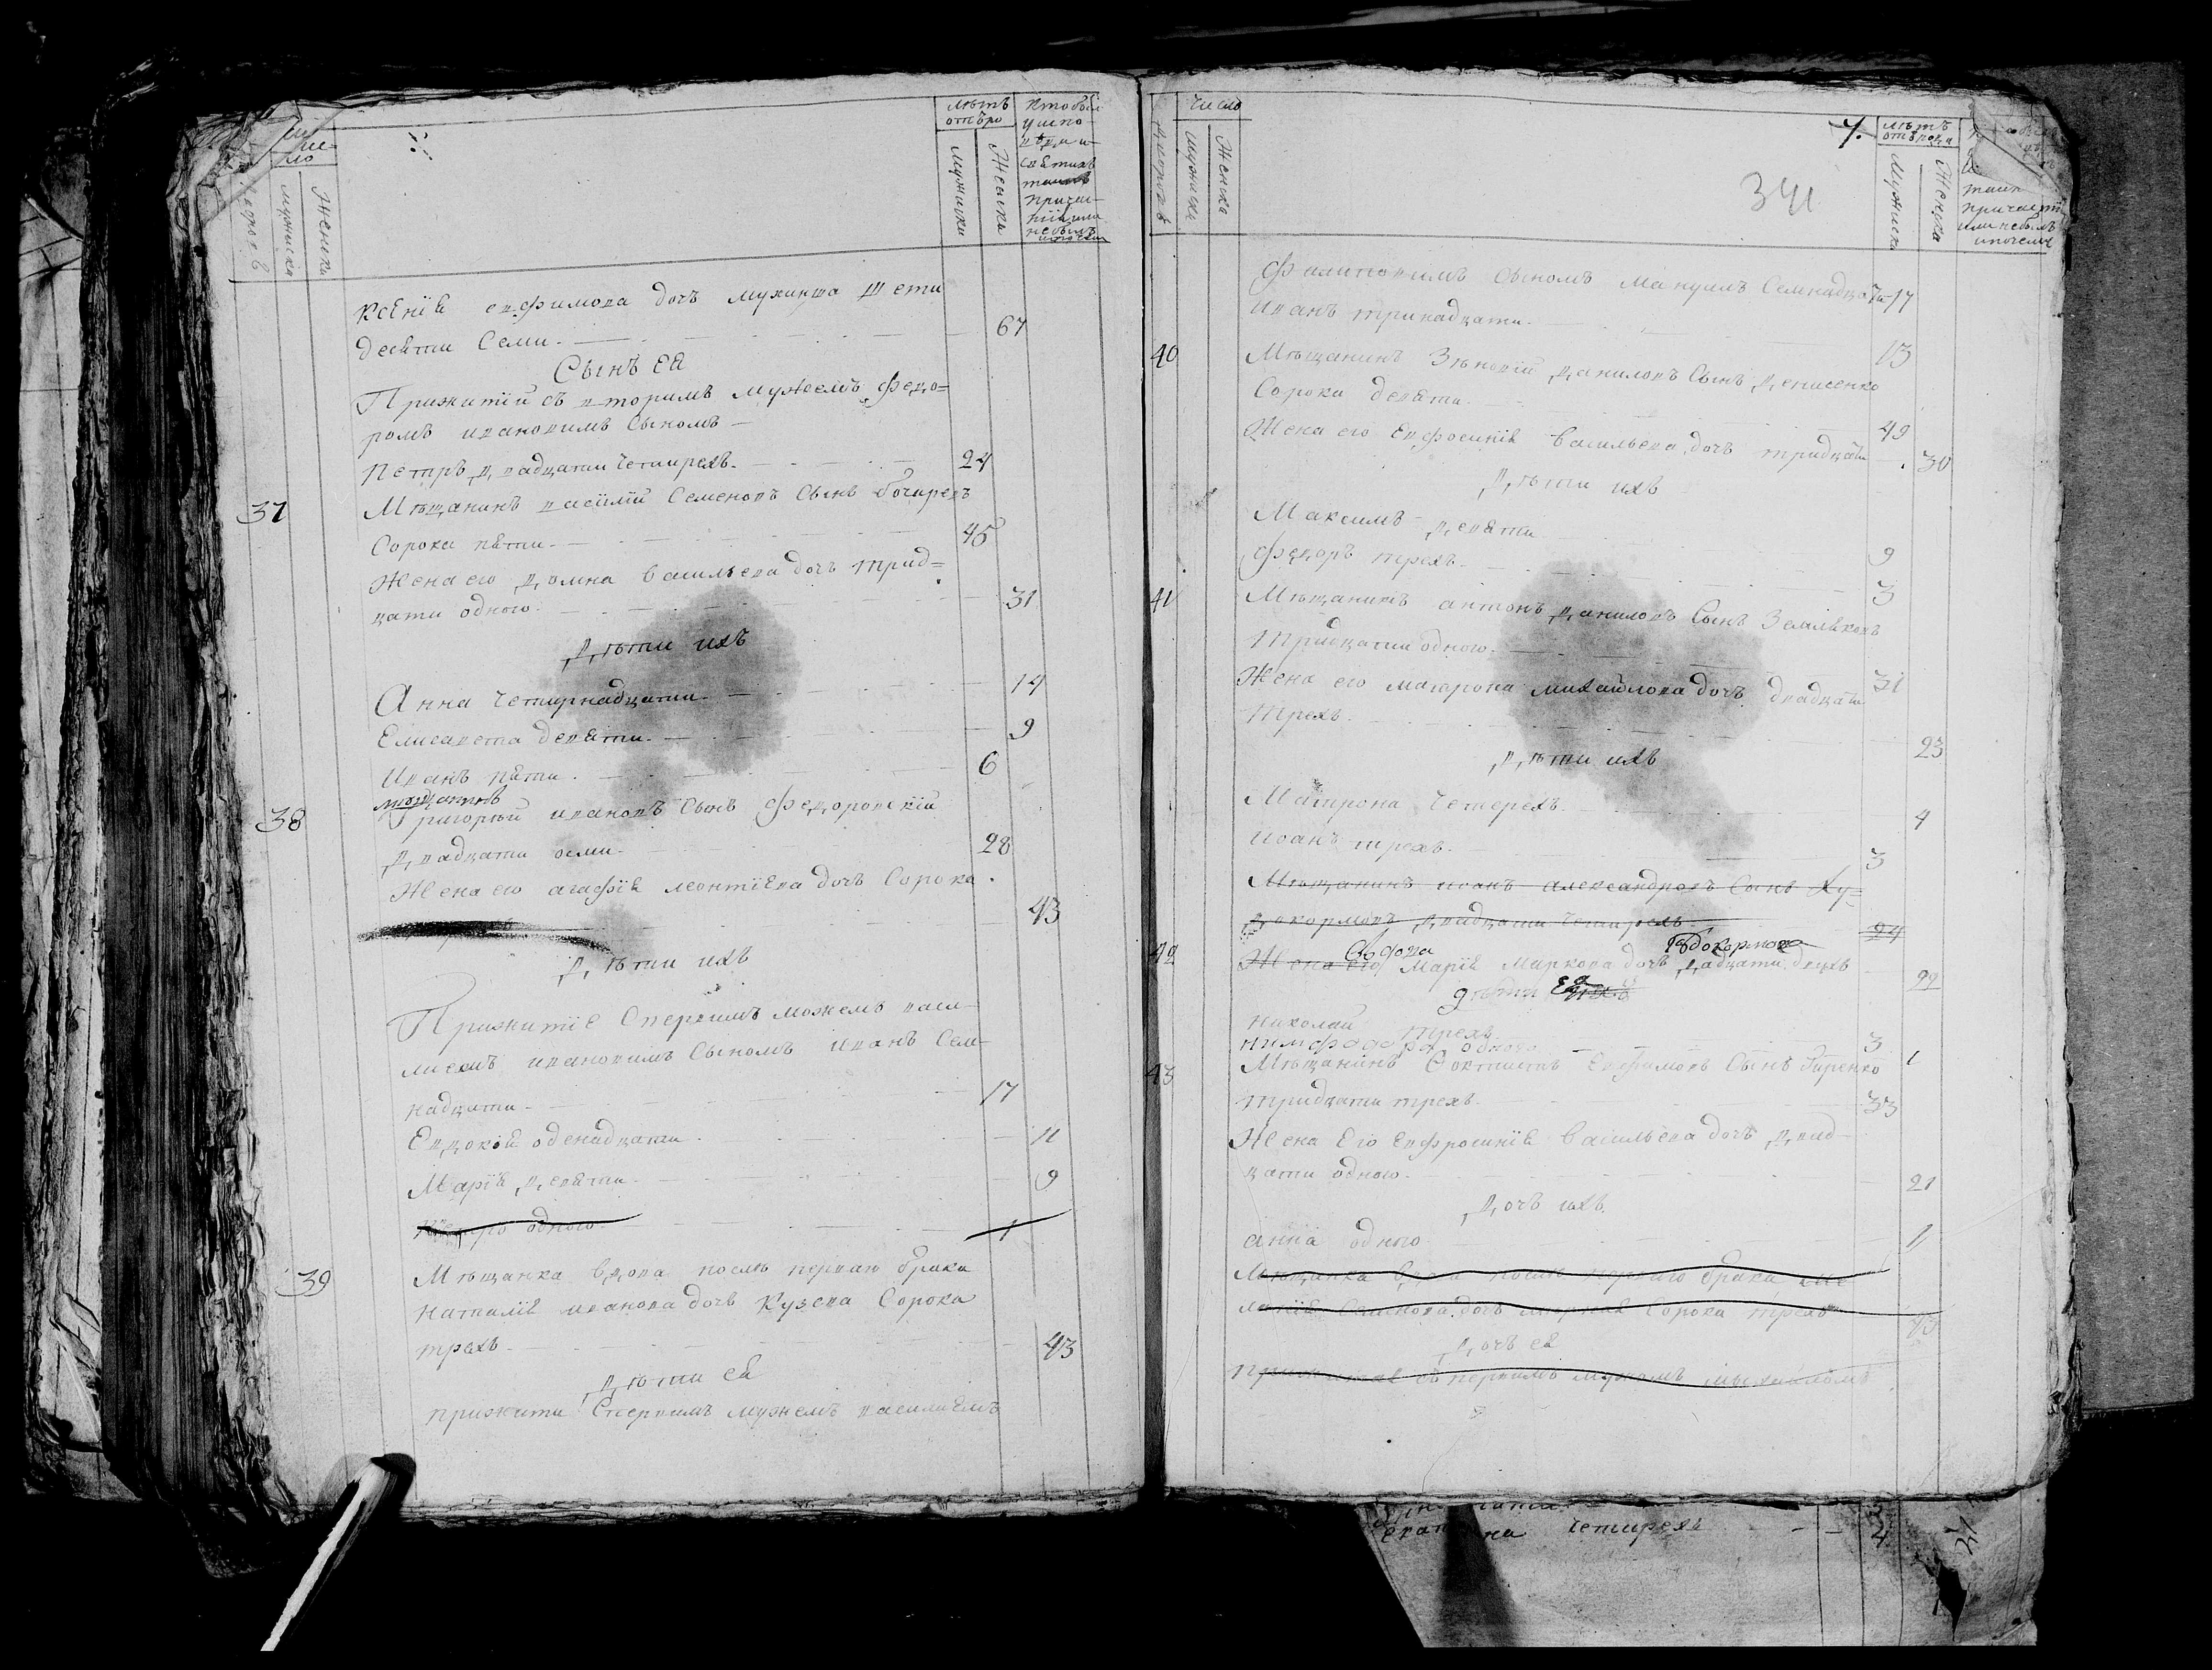 Число
Мужиска
Женска
лѣтъ
отъро
Мужиска
Женска
кто бы
у испо
вѣди и
святихъ
таинъ
причас-
тія или
небылъ
Ксенія евфимова дочъ Шети
десяти семи. 67
Сынъ ея
Прижитій съ вторимъ мужемъ Федо=
ромъ ивановимъ сыномъ
Петръ двадцати четирехъ. 24
37 Мѣщанинъ василій Семеновъ сынъ
Сорока пяти. 45
Жена его домна васильева дочъ трид=
цати одного. 31
Дѣти ихъ
Анна четирнадцати. 14
Елисавета девяти. 9
Иванъ пяти. 6
мѣщанинъ
38 Григорій ивановъ сынъ Федоровскій
двадцати осми. 28
Жена его агафія леонтіева дочъ Сорока.
43
Дѣти ихъ
Прижитіе Сперьвимъ можемъ васи-
лиемъ ивановимъ сыномъ иванъ Сем-
надцати. 17
Евдокія оденадцати. 11
Марія девяти. 9
одного 1
39 Мѣщанка вдова послѣ перваго брака
Наталія иванова дочъ Кузева Сорока
трехъ. 43
Дѣти ея
прижити Сперьвимъ мужемъ василиемъ
Число
Мужиска
Женска
7.
341
лѣтъ
отърода
Мужиска
Женска
таинъ
причастія
или небылъ
и почему
Филиповимъ сыномъ Мануилъ Семнадцати 17
Иванъ тринадцати. 13
40 Мѣщанинъ Зѣновій даниловъ сынъ денисенко
Сорока девяти. 49
Жена его Евфросинія васильева дочъ тридцати 30
Дѣти ихъ
Максимъ девяти 9
Федоръ трехъ. 3
41 Мѣщанинъ антонъ даниловъ сынъ Земляковъ
тридцати одного. 31
Жена его матрона михайлова дочъ двадцати
трехъ. 23
Дѣти ихъ
Матрона четерехъ. 4
иоанъ трехъ. 3
Мѣщанинъ иоанъ александровъ сынъ Ху-
докормовъ двадцати четирехъ 24
вдова
42 Жена его Марія Маркова дочъ двадцати двухъ 22
дѣти Ея ихъ
николай трехъ 3
нимфодора одного 1
43 Мѣщанинъ Евфимовъ сынъ
тридцати трехъ. 33
Жена его Евфросинія васильева дочъ двад-
цати одного. 21
Дочъ ихъ.
анна одного 1
Мѣщанка вдова послѣ перваго брака
дочъ Сорока трехъ 43
Дочъ ея
Прижитая съ первимъ мужомъ михайломъ
четирехъ 4